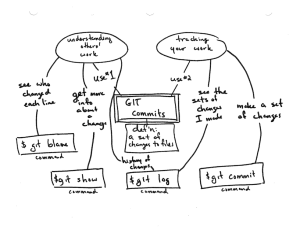 understanding
others'
work
tracking
your work
see who
changed
each line
get more
info
about
a
change
use #1
use #2
see the
sets of
changes
I made
make a set
of changes
GIT
commits
def'n:
a set of
changes to files
history of
changes
$ git blame
command
$git show
command
$git log
command
$git commit
command